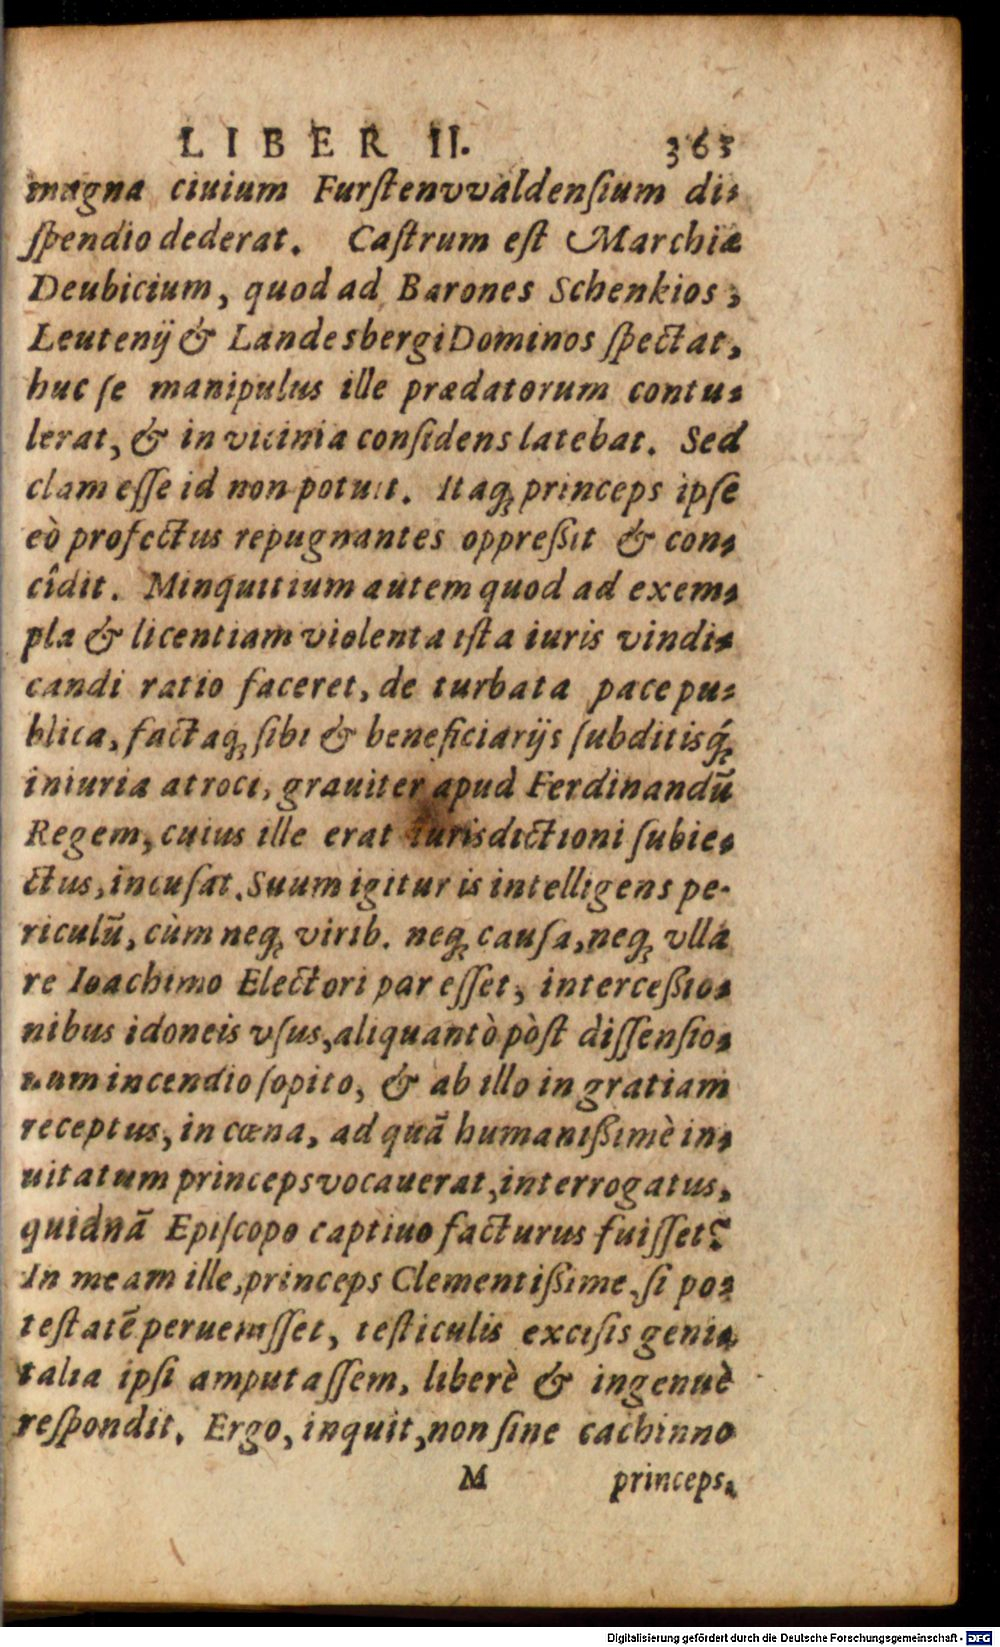 LIBER II. 363
magna ciuium Furſtenvvaldenſium di-
ſpendio dederat. Caſtrum eſt Marchiæ
Deubicium, quod ad Barones Schenkios,
Leutenij & Landesbergi Dominos ſpectat,
huc ſe manipulus ille prædatorum contu-
lerat, & in vicinia conſidens latebat. Sed
clam eſſe id non potuit. Itaq; princeps ipſe
eò profectus repugnantes oppreßit & con-
cîdit. Minquitium autem quod ad exem-
pla & licentiam violenta iſta iuris vindi-
candi ratio faceret, de turbata pace pu-
blica, factaq; ſibi & beneficiarijs ſubditisq́;
iniuria atroci, grauiter apud Ferdinandū
Regem, cuius ille erat iurisdictioni ſubie-
ctus, incuſat. Suum igitur is intelligens pe-
riculū, cùm neq; virib. neq; cauſa, neq; vlla
re Ioachimo Electori par eſſet, interceßio-
nibus idoneis vſus, aliquantò pòſt diſſenſio-
num incendio ſopito, & ab illo in gratiam
receptus, in cœna, ad quā humanißimè in-
uitatum princeps vocauerat, interrogatus,
quidnā Epiſcopo captiuo facturus fuiſſet?
In meam ille, princeps Clementißime, ſi po-
teſtatē perueniſſet, teſticulis exciſis geni-
talia ipſi amputaſſem, liberè & ingenuè
reſpondit. Ergo, inquit, non ſine cachinno
M princeps,
Digitalisierung gefördert durch die Deutsche Forschungsgemeinschaft - DFG